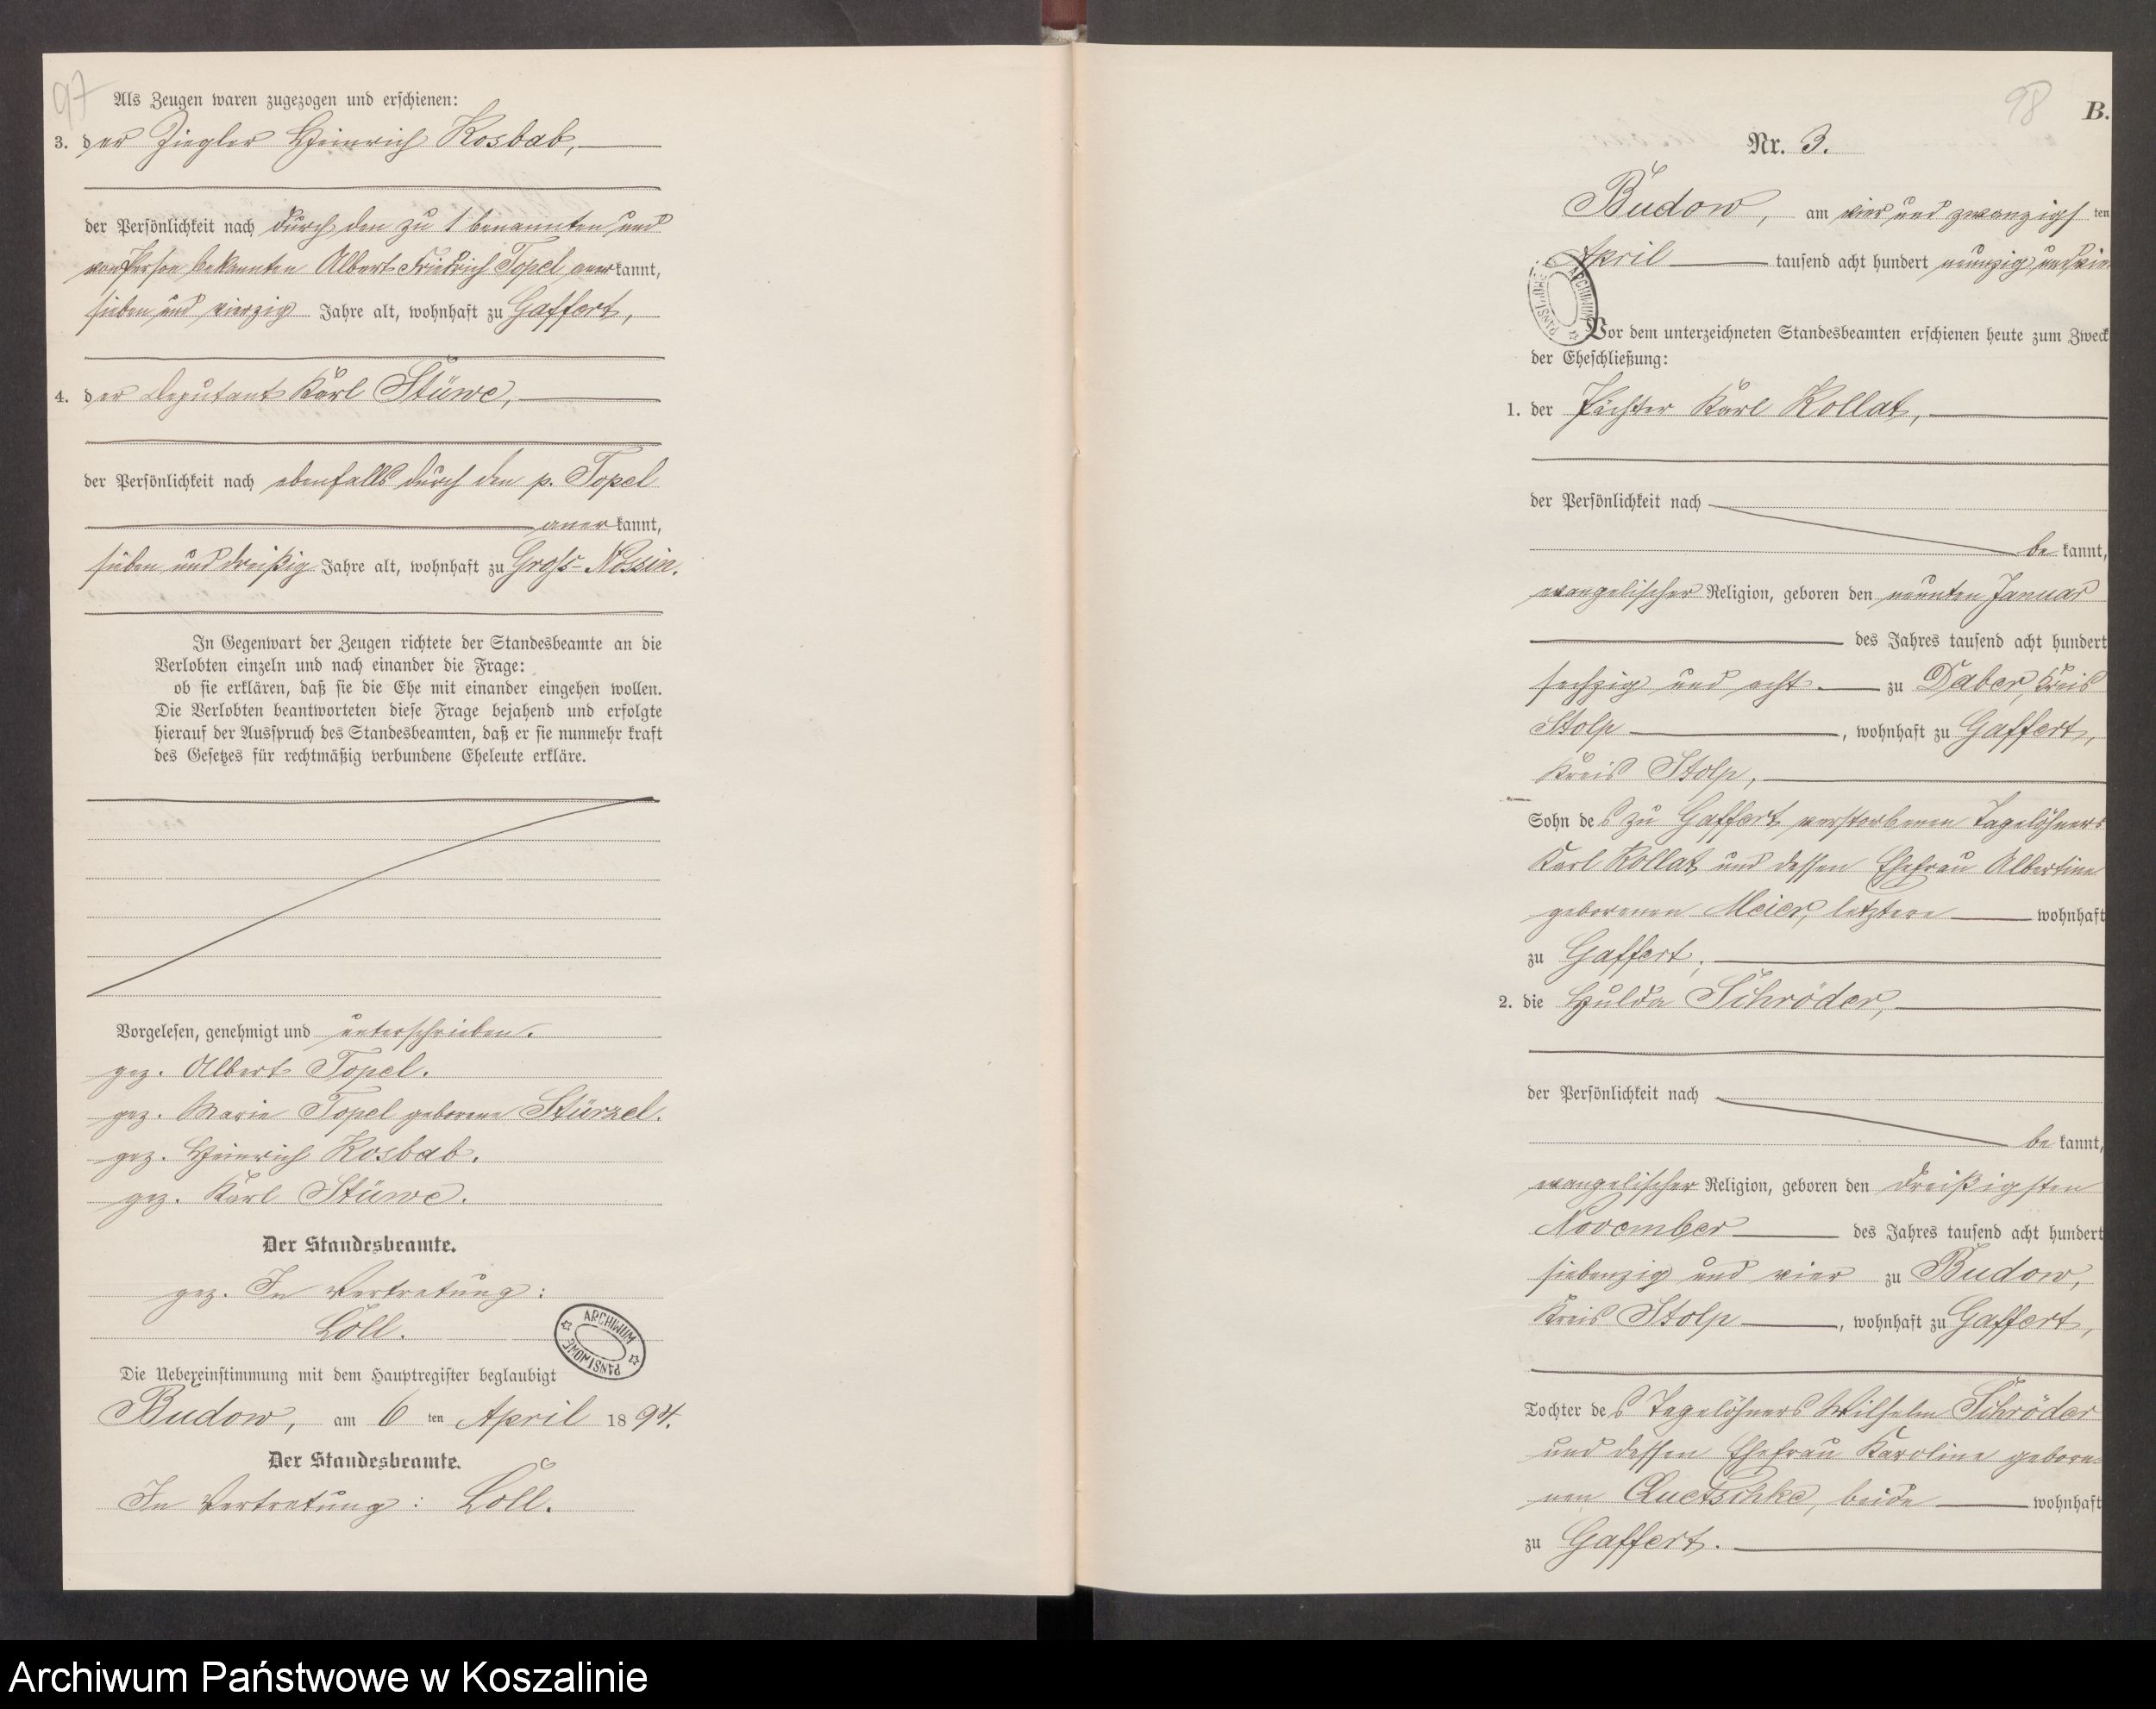 97
Als Zeugen waren zugezogen und erschienen:
3. der Ziegler Heinrich Kosbab,
der Persönlichkeit nach durch den zu 1 benannten und
von Person bekannten Albert Friedrich Topel anerkannt,
sieben und vierzig Jahre alt, wohnhaft zu Gaffert,
4. der Deputant Karl Stüwe,
der Persönlichkeit nach ebenfalls durch den p. Topel
anerkannt,
sieben und dreißig Jahre alt, wohnhaft zu Groß-Nossin.
In Gegenwart der Zeugen richtete der Standesbeamte an die
Verlobten einzeln und nach einander die Frage:
ob sie erklären, daß sie die Ehe mit einander eingehen wollen.
Die Verlobten beantworteten diese Frage bejahend und erfolgte
hierauf der Ausspruch des Standesbeamten, daß er sie nunmehr kraft
des Gesetzes für rechtmäßig verbundene Eheleute erkläre.
Vorgelesen, genehmigt und unterschrieben.
gez. Albert Topel.
gez. Marie Topel geborene Stürzel.
gez. Heinrich Kosbab.
gez. Karl Stüwe.
Der Standesbeamte.
gez. In Vertretung:
Löll.
ARCHIWUM PAŃSTWOWE
Die Uebereinstimmung mit dem Hauptregister beglaubigt
Budow, am 6 ten April 1894.
Der Standesbeamte.
In Vertretung: Löll.
98
B.
Nr. 3.
Budow, am vier und zwanzigsten
April tausend acht hundert neunzig und vier
ARCHIWUM PAŃSTWOWE
Vor dem unterzeichneten Standesbeamten erschienen heute zum Zweck
der Eheschließung:
1. der Pächter Karl Kollat,
der Persönlichkeit nach
be kannt,
evangelischer Religion, geboren den neunten Januar
des Jahres tausend acht hundert
sechzig und acht zu Daber, Kreis
Stolp, wohnhaft zu Gaffert,
Kreis Stolp,
Sohn des zu Gaffert verstorbenen Tagelöhners
Karl Kollat und dessen Ehefrau Albertine
geborenen Meier, letztere wohnhaft
zu Gaffert;
2. die Hulda Schröder,
der Persönlichkeit nach
be kannt,
evangelischer Religion, geboren den dreißigsten
November des Jahres tausend acht hundert
siebenzig und vier zu Budow,
Kreis Stolp, wohnhaft zu Gaffert,
Tochter des Tagelöhners Wilhelm Schröder
und dessen Ehefrau Karoline gebore-
nen Quetschke, beide wohnhaft
zu Gaffert.
Archiwum Państwowe w Koszalinie